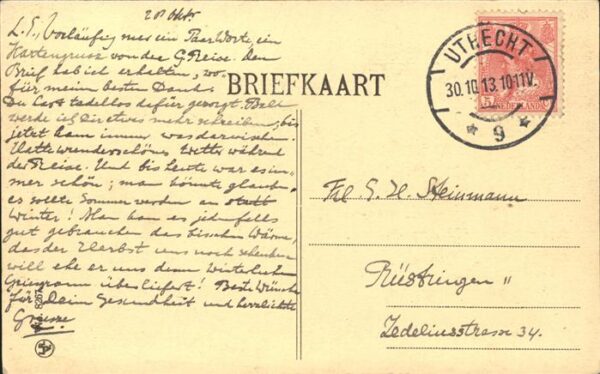 28 Okt.
L. S., Vorläufig nur ein Paar Worte, ein
Kartengruss von der G. Reise. Den
Brief hab ich erhalten, wo-
für meinen besten Dank.
Du hast tadellos dafür gesorgt. Bald
werde ich Dir etwas mehr schreiben, bis
jetzt kam immer was dazwischen.
Hatte wunderschönes Wetter während
der Reise. Und bis heute war es im-
mer schön; man könnte glauben
es sollte Sommer werden an statt
Winter! Man kann es jedenfalls
gut gebrauchen das bischen Wärme,
das der Herbst uns noch schenken
will ehe er uns dem winterlichen
überliefert! Beste Wünsche
für Dein Gesundheit und herzlichte
Grüsse
BRIEFKAART
UTRECHT
30.10.13.10-11V.
9
5
NEDERLAND
Frl. G. H. Steinmann
Rüstringen "
Zedeliusstrasse 34.